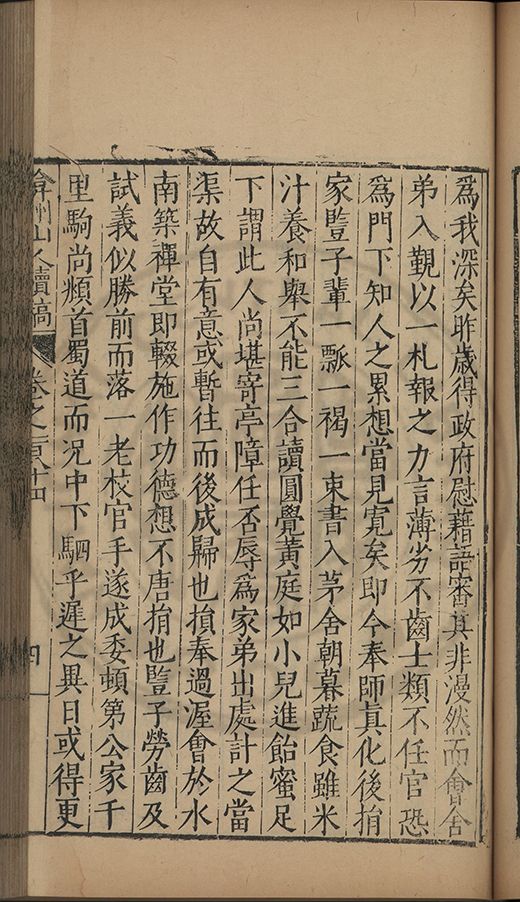 爲我深矣昨歲得政府慰藉語審其非漫然而會舍
弟入覲以一札報之力言薄劣不齒士類不任官恐
爲門下知人之累想當見寬矣即今奉師眞化後捐
家豎子輩一瓢一褐一束書入茅舍朝暮蔬食雖米
汁養和舉不能三合讀圓覺黃庭如小兒進飴蜜足
下謂此人尚堪寄亭障任否辱爲家弟出處計之當
渠故自有意或暫往而後成歸也損奉過渥會於水
南築禪堂即輟施作功德想不唐捐也豎子勞齒及
試義似勝前而落一老校官手遂成委頓第公家千
里駒尚頫首蜀道而况中下駟乎遲之異日或得更
弇州山人續稿 卷之一百八十四 四